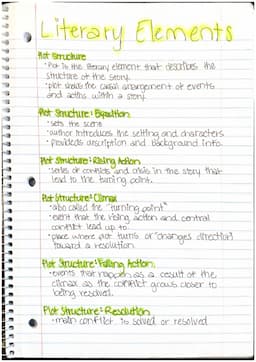 Literary Elements
Plot Structure
• Plot is the literary element that describes the
structure of the story.
• plot shows the causal arrangement of events
and actions within a story.
Plot Structure: Exposition
• sets the scene
• author introduces the setting and characters
• provides description and background info.
Plot Structure: Rising Action
• series of conflicts and crisis in the story that
lead to the turning point.
Plot Structure: Climax
• also called the "turning point"
• event that the rising action and central
conflict lead up to.
• place where plot turns or "changes direction"
toward a resolution.
Plot Structure: Falling Action
• events that happen as a result of the
climax as the conflict grows closer to
being resolved.
Plot Structure: Resolution
• main conflict is solved or resolved